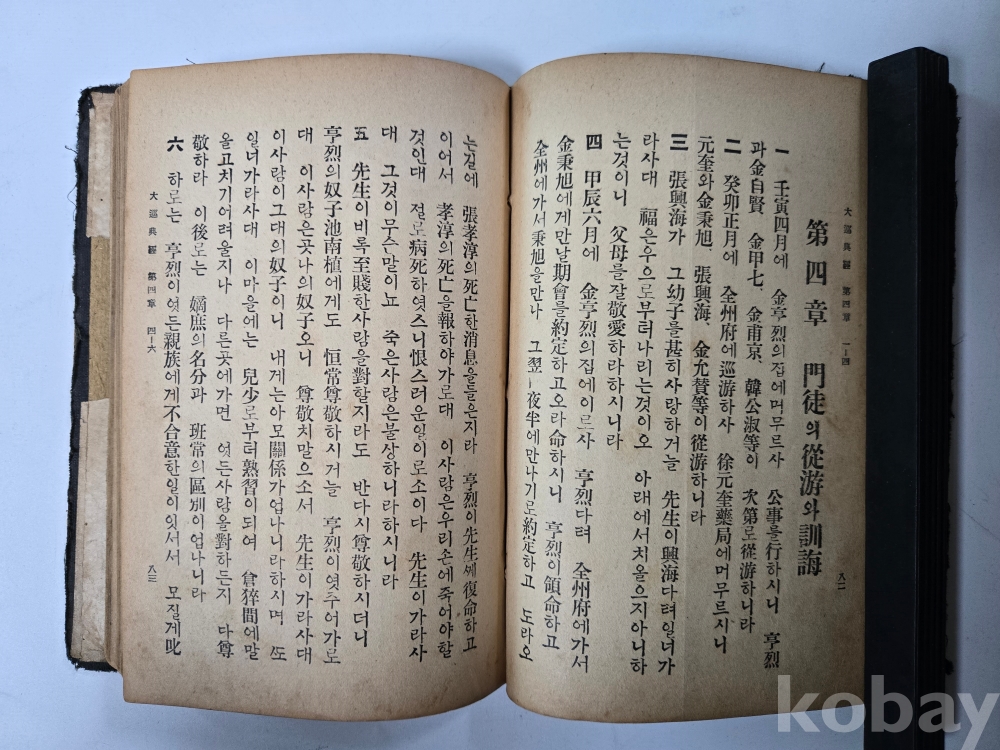 大巡典經 第四章 一—四
八二
第四章 門徒의從游와訓誨
一 壬寅四月에 金亨烈의집에머무르사 公事를行하시니 亨烈
과金自賢 金甲七、金甫京、韓公淑等이 次第로從游하니라
二 癸卯正月에 全州府에巡游하사 徐元奎藥局에머무르시니
元奎와金秉旭、張興海、金允贊等이從游하니라
三 張興海가 그幼子를甚히사랑하거늘 先生이興海다려일너가
라사대 福은우으로부터나리는것이오 아래에서치올으지아니하
는것이니 父母를잘敬愛하라하시니라
四 甲辰六月에 金亨烈의집에이르사 亨烈다려 全州府에가서
金秉旭에게만날期會를約定하고오라命하시니 亨烈이領命하고
全州에가서秉旭을만나 그翌日夜半에만나기로約定하고 도라오
는길에 張孝淳의死亡한消息을들은지라 亨烈이先生께復命하고
이어서 孝淳의死亡을報하야가로대 이사람은우리손에죽어야할
것인대 절로病死하엿스니恨스러운일이로소이다 先生이가라사
대 그것이무슨말이뇨 죽은사람은불상하니라하시니라
五 先生이비록至賤한사람을對할지라도 반다시尊敬하시더니
亨烈의奴子池南植에게도 恒常尊敬하시거늘 亨烈이엿주어가로
대 이사람은곳나의奴子오니 尊敬치말으소서 先生이가라사대
이사람이그대의奴子이니 내게는아모關係가업나니라하시며 또
일너가라사대 이마을에는 兒少로부터熟習이되여 倉猝間에말
올고치기어려울지나 다른곳에가면 엇든사람을對하든지 다尊
敬하라 이後로는 嫡庶의名分과 班常의區別이업나니라
六 하로는 亨烈이엇든親族에게不合意한일이잇서서 모질게叱
大巡典經 第四章 四—六
八三
kobay